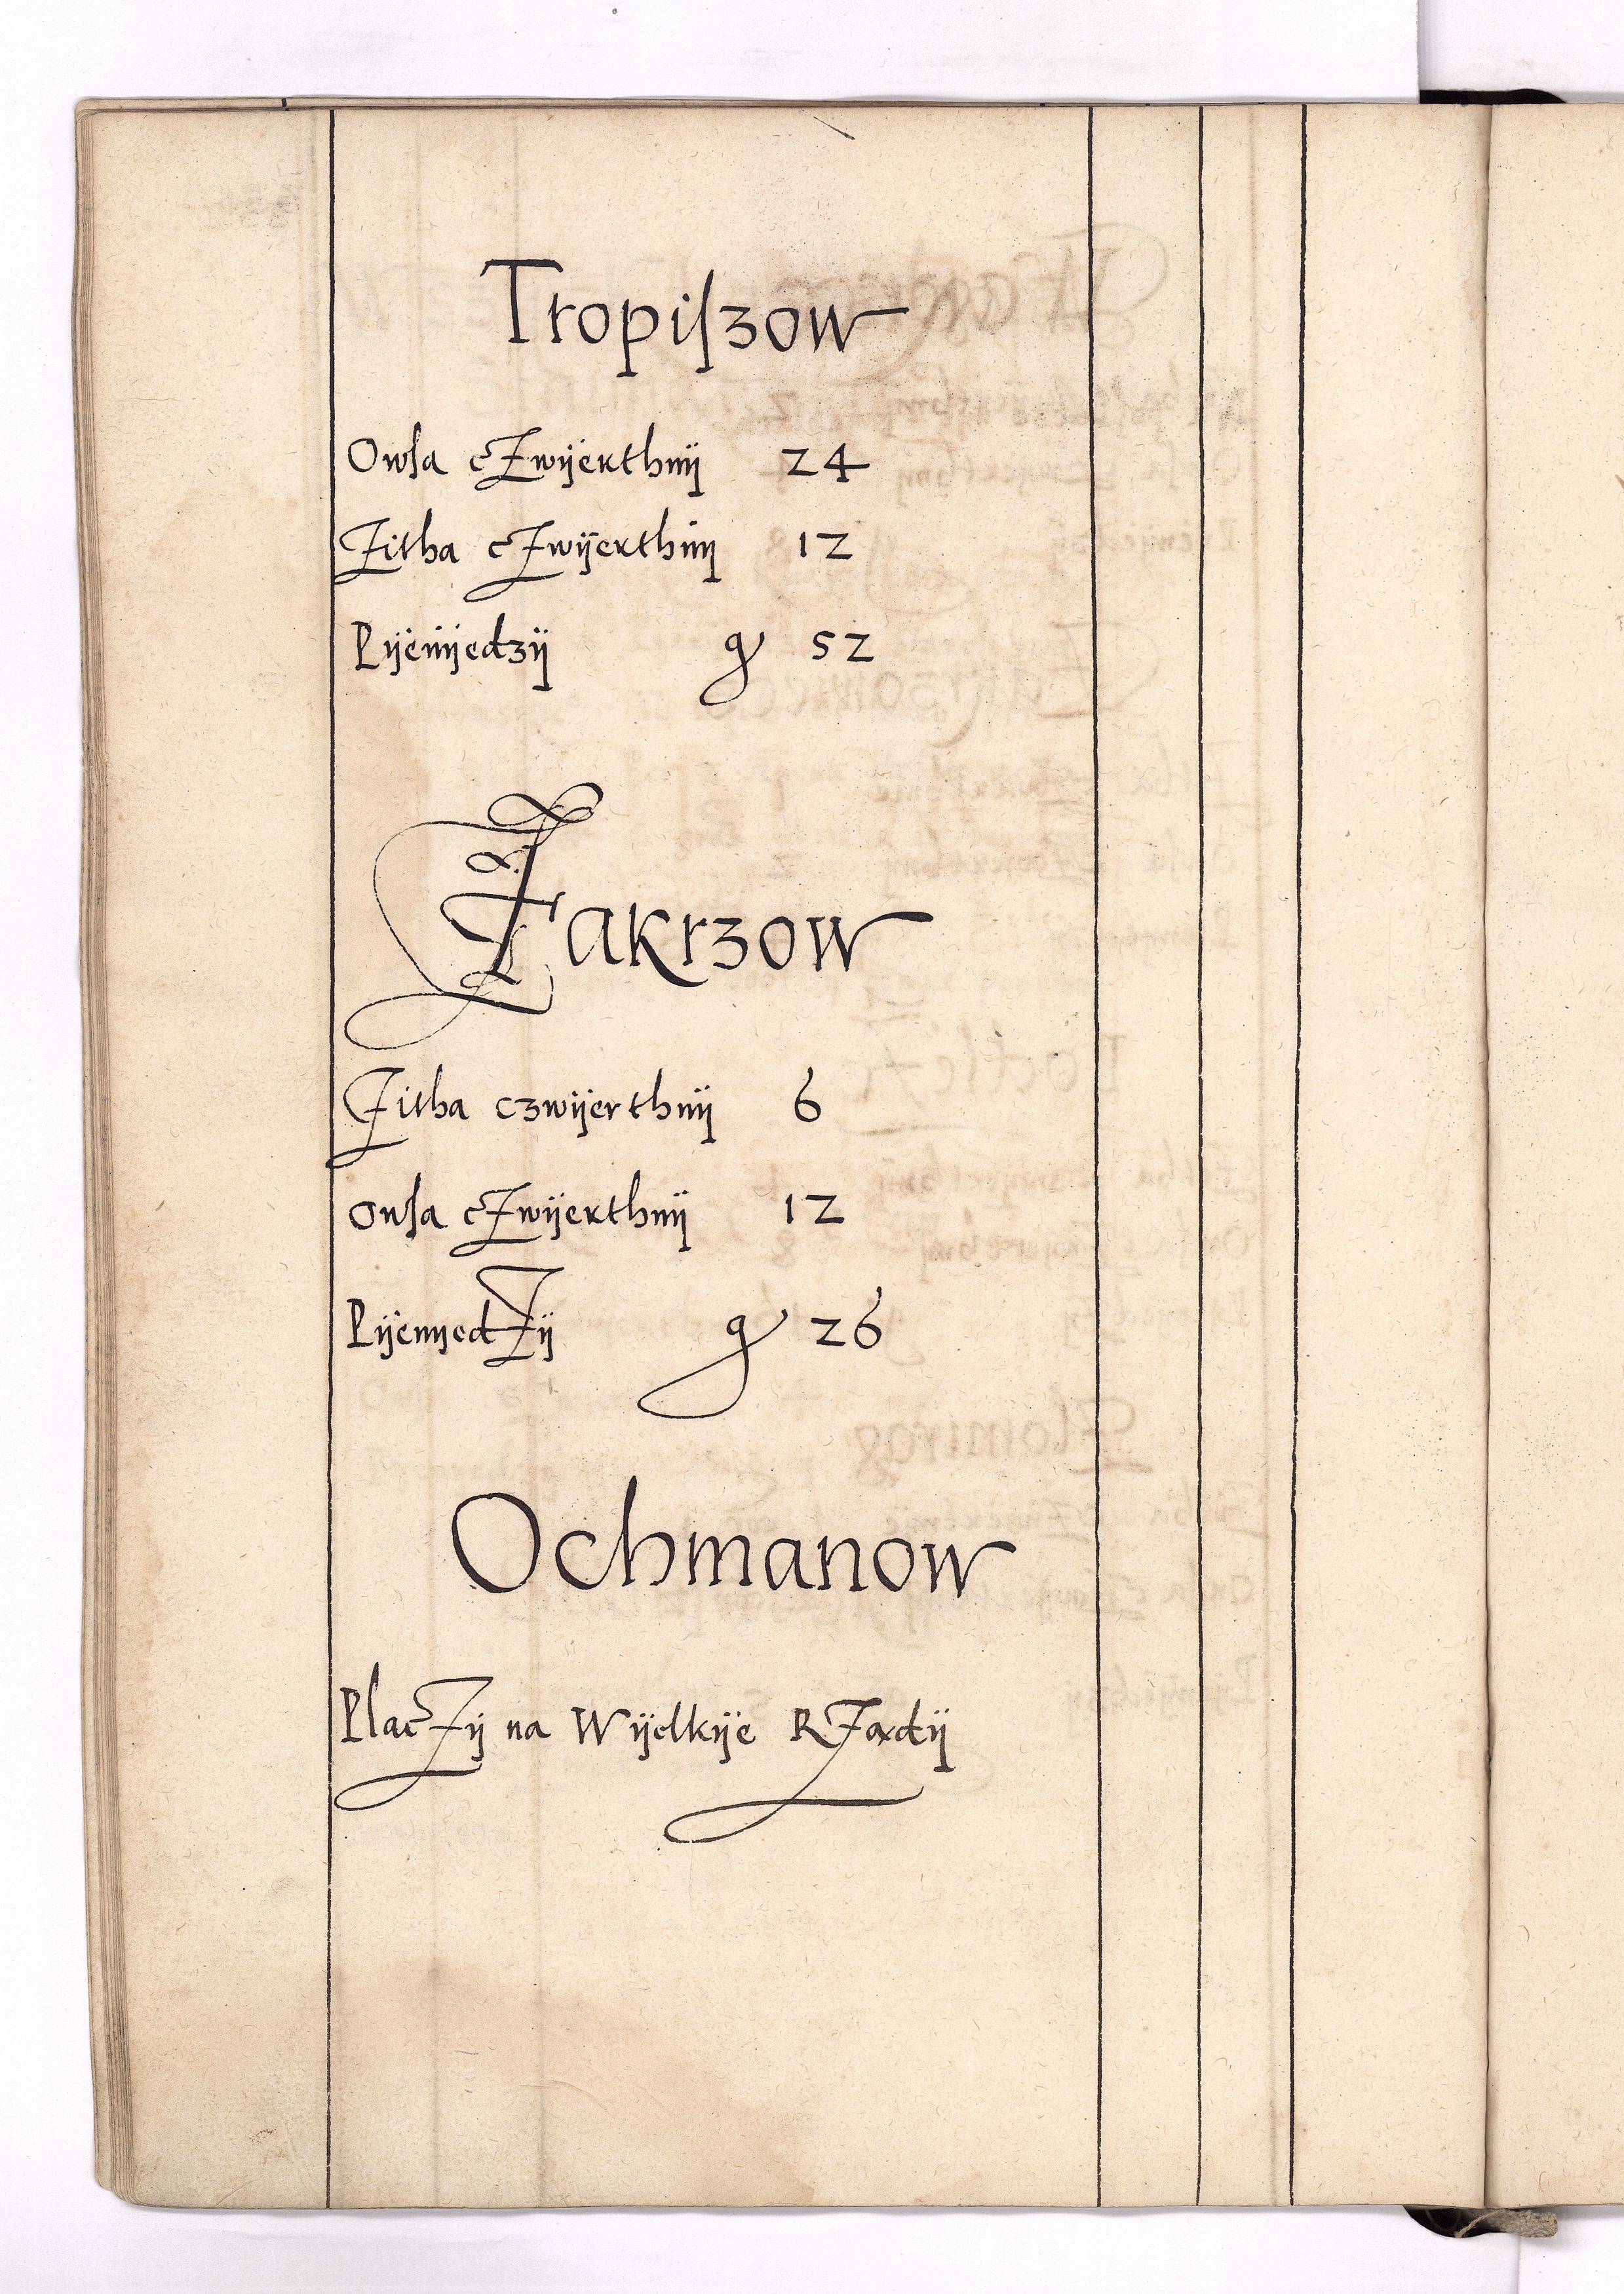 Tropiſzow
Owſa cZwÿerthnÿ 24
Zitha cZwÿerthnÿ 12
Pÿenÿedzÿ g 52
Zakrzow
Zitha czwÿerthnÿ 6
Owſa cZwÿerthnÿ 12
PÿenÿedZÿ g 26
Ochmanow
PlacZÿ na Wÿelkÿe RZądÿ